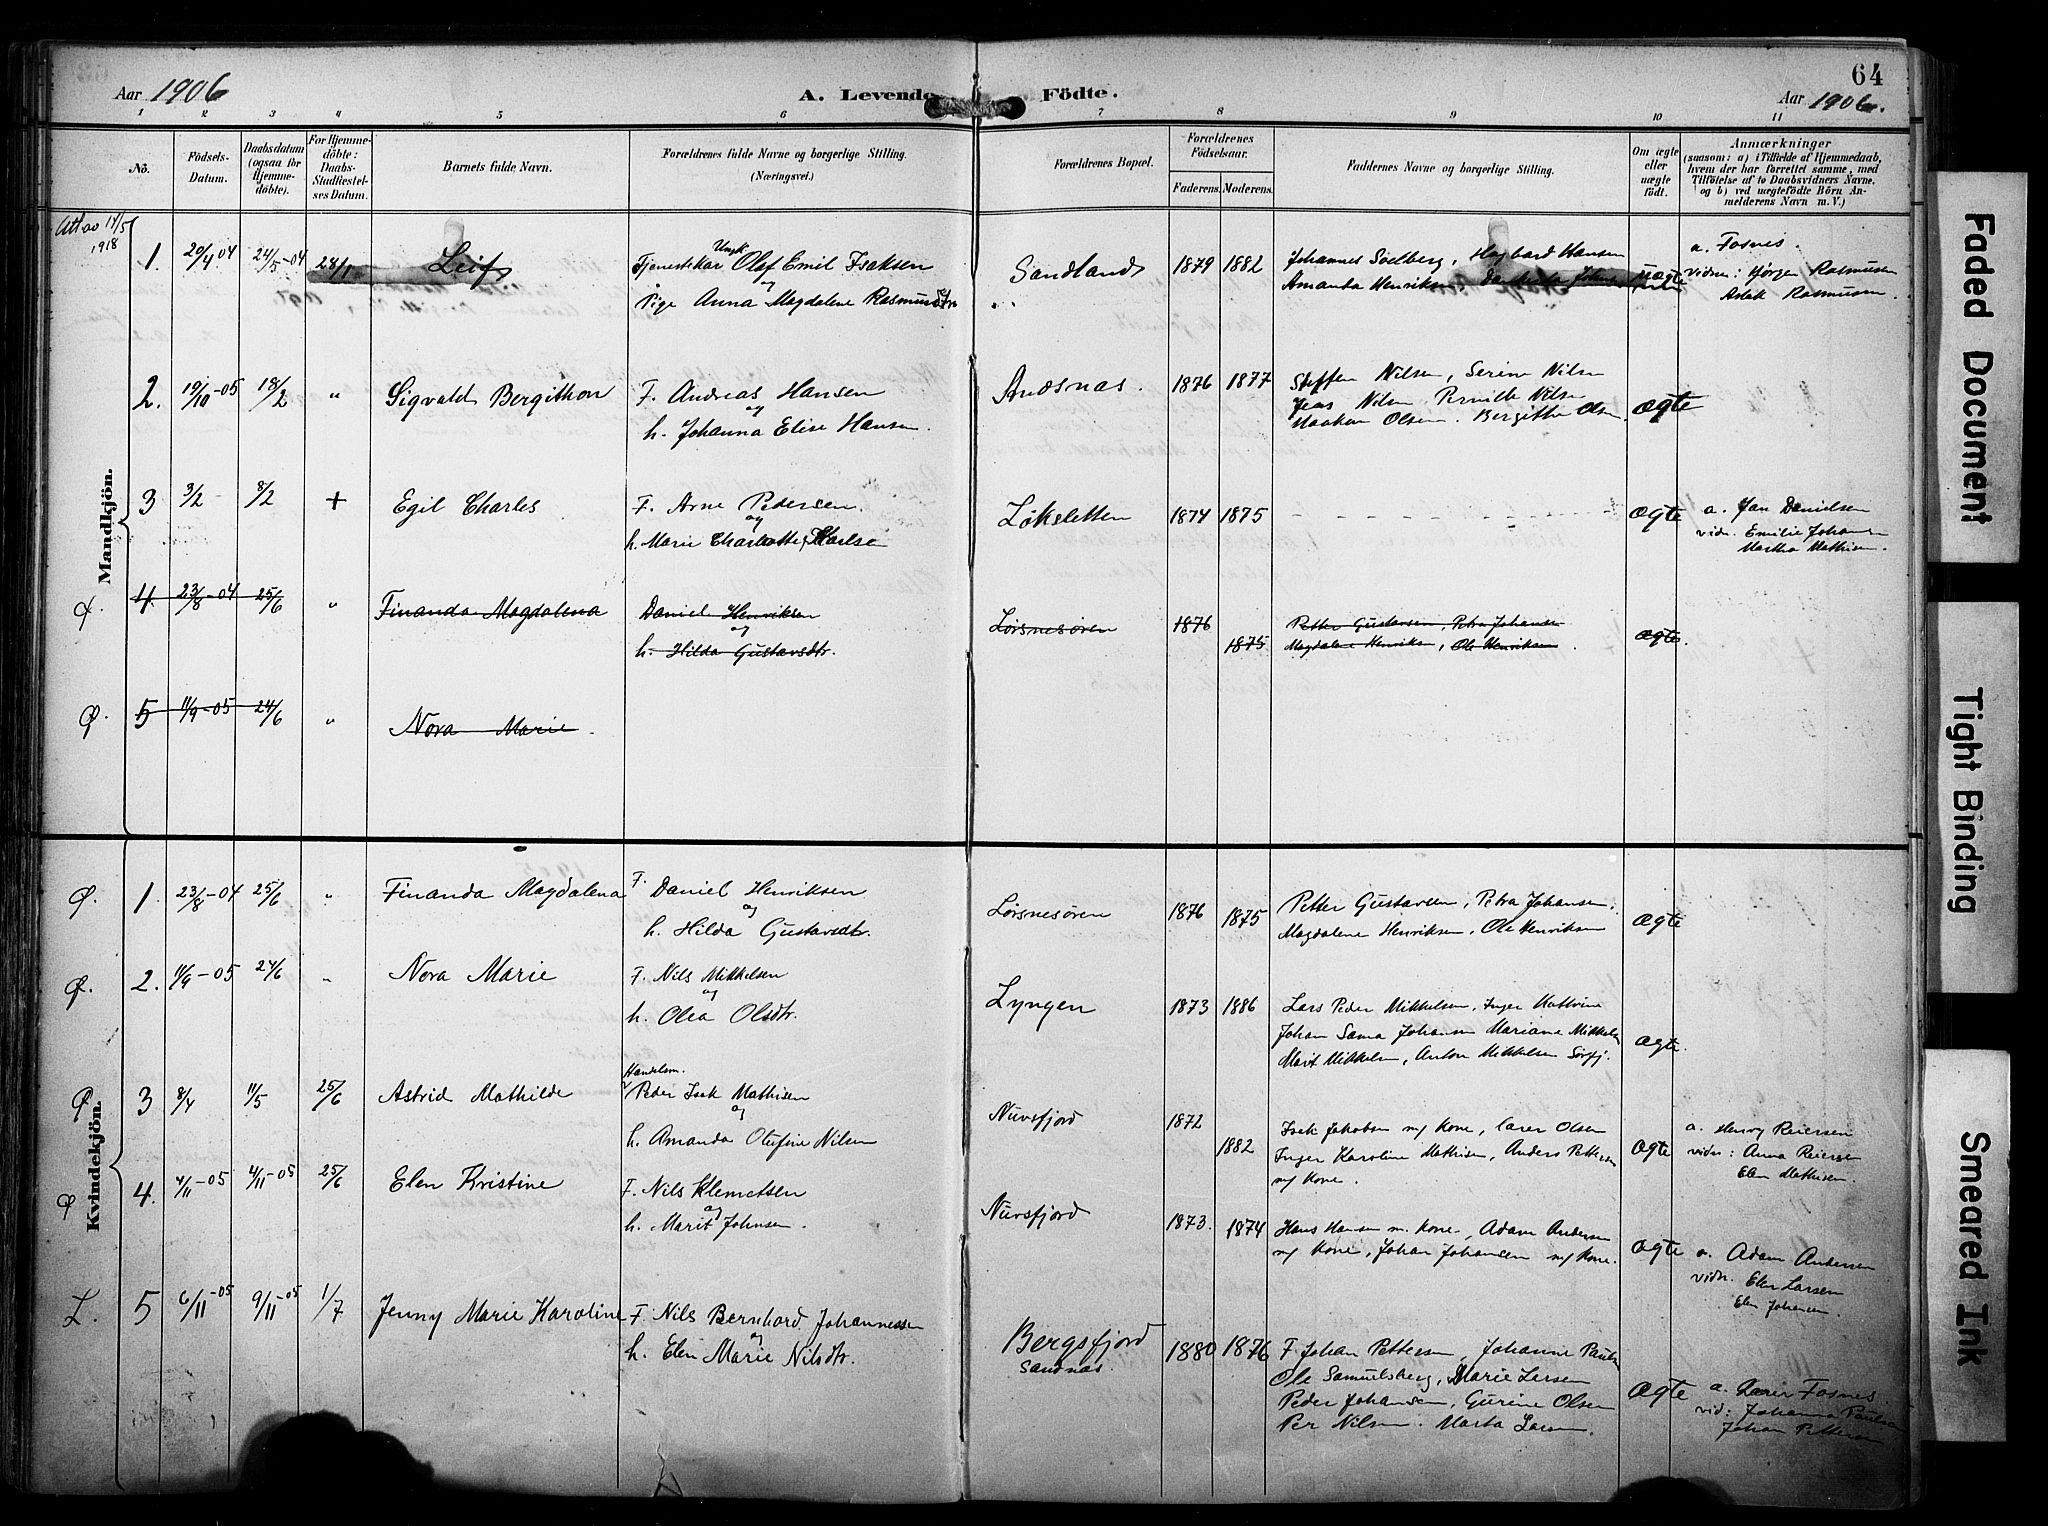 64
Aar 1906
A. Levende Födte.
Aar 1906.
1 2 3 4 5 6 7 8 9 10 11
No.
Födsels-Datum.
Daabsdatum (ogsaa for Hjemmedöbte).
For Hjemmedöbte: Daabs-Stadfæstelses Datum.
Barnets fulde Navn.
Forældrenes fulde Navne og borgerlige Stilling.
(Næringsvei.)
Forældrenes Bopæl.
Forældrenes Födselsaar.
Faderens. Moderens.
Faddernes Navne og borgerlige Stilling.
Om ægte eller uægte födt.
Anmærkninger
(saasom: a) i Tilfælde af Hjemmedaab, hvem der har forrettet samme, med Tilföielse af to Daabsvidners Navne, og b) ved uægtefödte Börn Anmelderens Navn m. V.)
Mandkjön.
1918
1. 20/4 04 24/5-04 28/1 Leif
Ungk.
Tjenestekar Olaf Emil Isaksen
og
Pige Anna Magdalene Rasmusdtr
Sandland 1879 1882
Johannes Soelberg, Hagbard Hansen
Amanda Henriksen
a. Fosnes.
vidn: Hjørgen Rasmussen
Aslak Rasmussen.
2. 19/10-05 18/2 " Sigvald Bergithon
F. Andreas Hansen
og
h. Johanna Elise Hansen.
Andsnæs. 1876 1877
Steffen Nilsen, Serine Nilsen
Jens Nilsen Pernille Nilsen
Haakon Olsen. Bergitha Olsen
ægte
3 3/2 8/2 + Egil Charles
F. Arne Pedersen.
og
h. Marie Charlotte Karlsen
Løksletten 1874 1875
ægte
a. Jan Danielsen
vidn. Emilie Johansen
Martha Mathisen.
4. 23/8-04 25/6 " Finanda Magdalena
Daniel Henriksen
og
h. Hilda Gustavsdtr.
Lørsnesøren 1876 1875
Petter Gustavsen, Petra Johansen
Magdalene Henriksen, Ole Henriksen.
ægte.
5 11/9-05 24/6 " Nora Marie.
Kvindekjön.
1. 23/8-04 25/6 " Finanda Magdalena
F. Daniel Henriksen
og
h. Hilda Gustavsdtr.
Lørsnesøren 1876 1875
Petter Gustavsen, Petra Johansen.
Magdalene Henriksen, Ole Henriksen
ægte
2. 11/9-05 24/6 Nora Marie
F. Nils Mikkelsen
og
h. Olea Olsdtr.
Lyngen 1873 1886
Lars Peder Mikkelsen, Inger Kathrine
Johan Sama Johansen Mariane Mikkelsen
Marit Mikkelsen, Anton Mikkelsen Sørfj.
ægte.
3 8/4 11/5 25/6 Astrid Mathilde
Handelsm.
Peder Isak Mathisen
og
h. Amanda Olufine Nilsen
Nuvsfjord 1872 1882
Isak Jakobsen m/ Kone, Carer Olsen
Inger Karoline Mathisen, Anders Pettersen
m/ Kone.
ægte
a. Henry Reiersen
vidn: Anna Reiersen
Elen Mathisen.
4. 4/11-05 4/11-05 25/6 Elen Kristine
F. Nils Klemetsen
og
h. Marit Johnsen.
Nuvsfjord 1873. 1874
Hans Hansen m. Kone, Adam Andersen
m/ Kone, Johan Johansen m/ Kone.
ægte
a. Adam Andersen
vidn. Elen Larsen
Elen Johansen.
L. 5 6/11-05 9/11-05 1/7 Jenny Marie Karoline
F. Nils Bernhard Johannessen
og
h. Elen Marie Nilsdtr.
Bergsfjord
Sandnæs. 1880 1876
F. Johan Pettersen, Johanne Paulsen
Ole Samuelsberg, Marie Larsen
Peder Johansen, Gurine Olsen
Per Nilsen. Marta Larsen.
ægte
a. Karer Fosnes.
vid: Johanna Paulsen
Johan Pettersen
Faded Document
Tight Binding
Smeared Ink